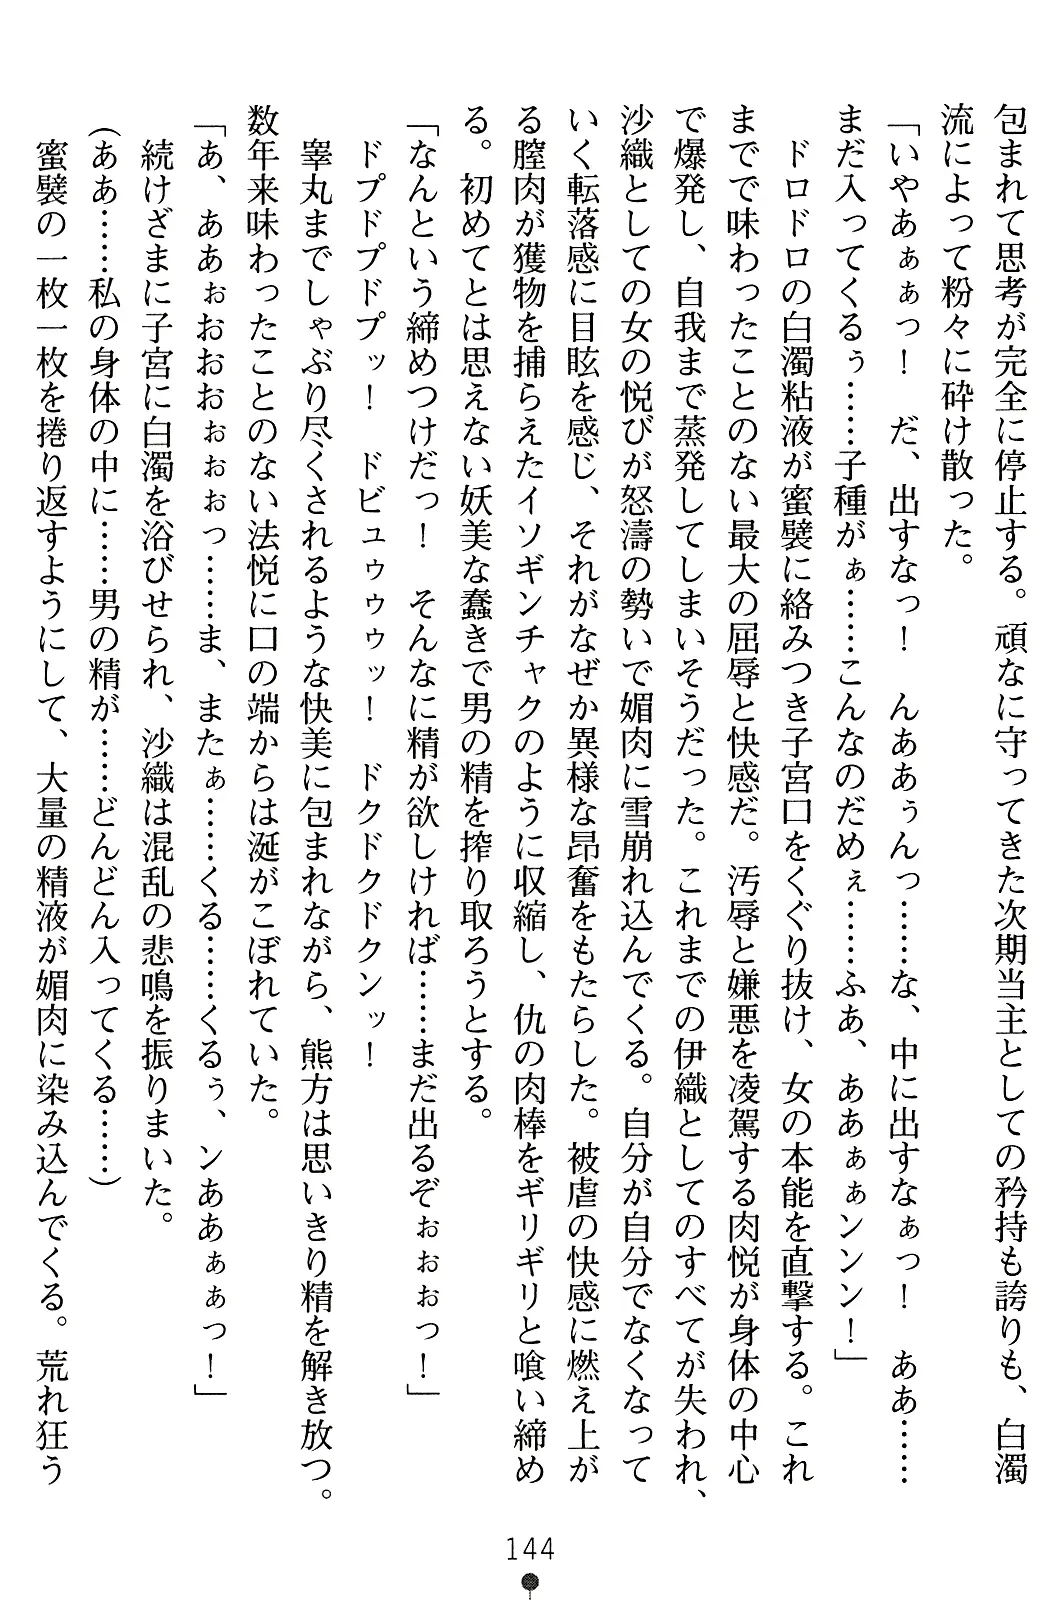 包まれて思考が完全に停止する。頑なに守ってきた次期当主としての矜持も誇りも、白濁
流によって粉々に砕け散った。
「いやあぁぁっ！　だ、出すなっ！　んああぅんっ……な、中に出すなぁっ！　ああ……
まだ入ってくるぅ……子種がぁ……こんなのだめぇ……ふあ、ああぁぁンンン！」
ドロドロの白濁粘液が蜜襞に絡みつき子宮口をくぐり抜け、女の本能を直撃する。これ
までで味わったことのない最大の屈辱と快感だ。汚辱と嫌悪を凌駕する肉悦が身体の中心
で爆発し、自我まで蒸発してしまいそうだった。これまでの伊織としてのすべてが失われ、
沙織としての女の悦びが怒濤の勢いで媚肉に雪崩れ込んでくる。自分が自分でなくなって
いく転落感に目眩を感じ、それがなぜか異様な昂奮をもたらした。被虐の快感に燃え上が
る膣肉が獲物を捕らえたイソギンチャクのように収縮し、仇の肉棒をギリギリと喰い締め
る。初めてとは思えない妖美な蠢きで男の精を搾り取ろうとする。
「なんという締めつけだっ！　そんなに精が欲しければ……まだ出るぞぉぉぉっ！」
ドプドプドプッ！　ドビュゥゥゥッ！　ドクドクドクンッ！
睾丸までしゃぶり尽くされるような快美に包まれながら、熊方は思いきり精を解き放つ。
数年来味わったことのない法悦に口の端からは涎がこぼれていた。
「あ、ああぉおおおぉぉぉっ……ま、またぁ……くる……くるぅ、ンああぁぁっ！」
続けざまに子宮に白濁を浴びせられ、沙織は混乱の悲鳴を振りまいた。
(ああ……私の身体の中に……男の精が……どんどん入ってくる……)
蜜襞の一枚一枚を捲り返すようにして、大量の精液が媚肉に染み込んでくる。荒れ狂う
144